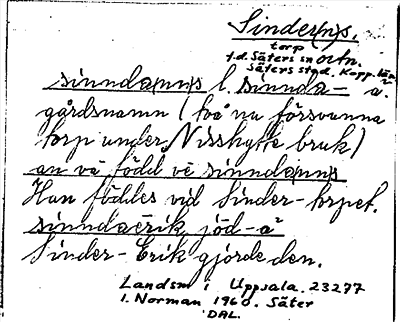 Sinder(n)s.
torp
f.d. Säters sn ortn.
Säters stad. Kopp. län
sinnda(nn)s l. sinnda- a.
gårdsnamn (två nu försvunna
torp under Nisshytte bruk)
an va född ve sinnda(nn)s
Han föddes vid Sinder-torpet.
sinndaerik jöd-a
Sinder-Erik gjorde den.
Landsm i Uppsala. 23277
I. Norman 1960. Säter
DAL.